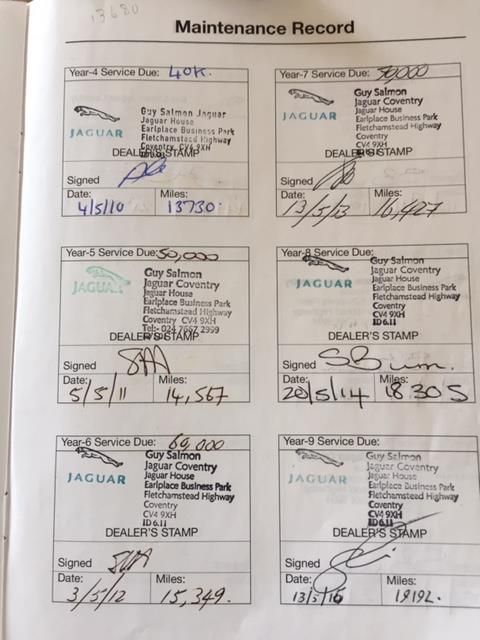 13680
Maintenance Record
Year-4 Service Due: 40K.
JAGUAR
Guy Salmon Jaguar
Jaguar House
Earlplace Business Park
Fletchamstead Highway
Coventry CV4 9XH
DEALER'S STAMP
Signed
Date: Miles:
4/5/10 13730.
Year-5 Service Due: 50,000
JAGUAR
Guy Salmon
Jaguar Coventry
Jaguar House
Earlplace Business Park
Fletchamstead Highway
Coventry CV4 9XH
Tel:- 024 7667 2999
DEALER'S STAMP
Signed
Date: Miles:
5/5/11 14,567
Year-6 Service Due: 60,000
JAGUAR
Guy Salmon
Jaguar Coventry
Jaguar House
Earlplace Business Park
Fletchamstead Highway
CV4 9XH
ID 6.11
DEALER'S STAMP
Signed
Date: Miles:
3/5/12 15,349.
Year-7 Service Due: 50,000
JAGUAR
Guy Salmon
Jaguar Coventry
Jaguar House
Earlplace Business Park
Fletchamstead Highway
CV4 9XH
DEALER'S STAMP
Signed
Date: Miles:
13/5/13 16,427
Year-8 Service Due:
JAGUAR
Guy Salmon
Jaguar Coventry
Jaguar House
Earlplace Business Park
Fletchamstead Highway
CV4 9XH
ID 6.11
DEALER'S STAMP
Signed
Date: Miles:
20/5/14 18305
Year-9 Service Due:
JAGUAR
Guy Salmon
Jaguar Coventry
Jaguar House
Earlplace Business Park
Fletchamstead Highway
CV4 9XH
ID 6.11
DEALER'S STAMP
Signed
Date: Miles:
13/5/16 19192.